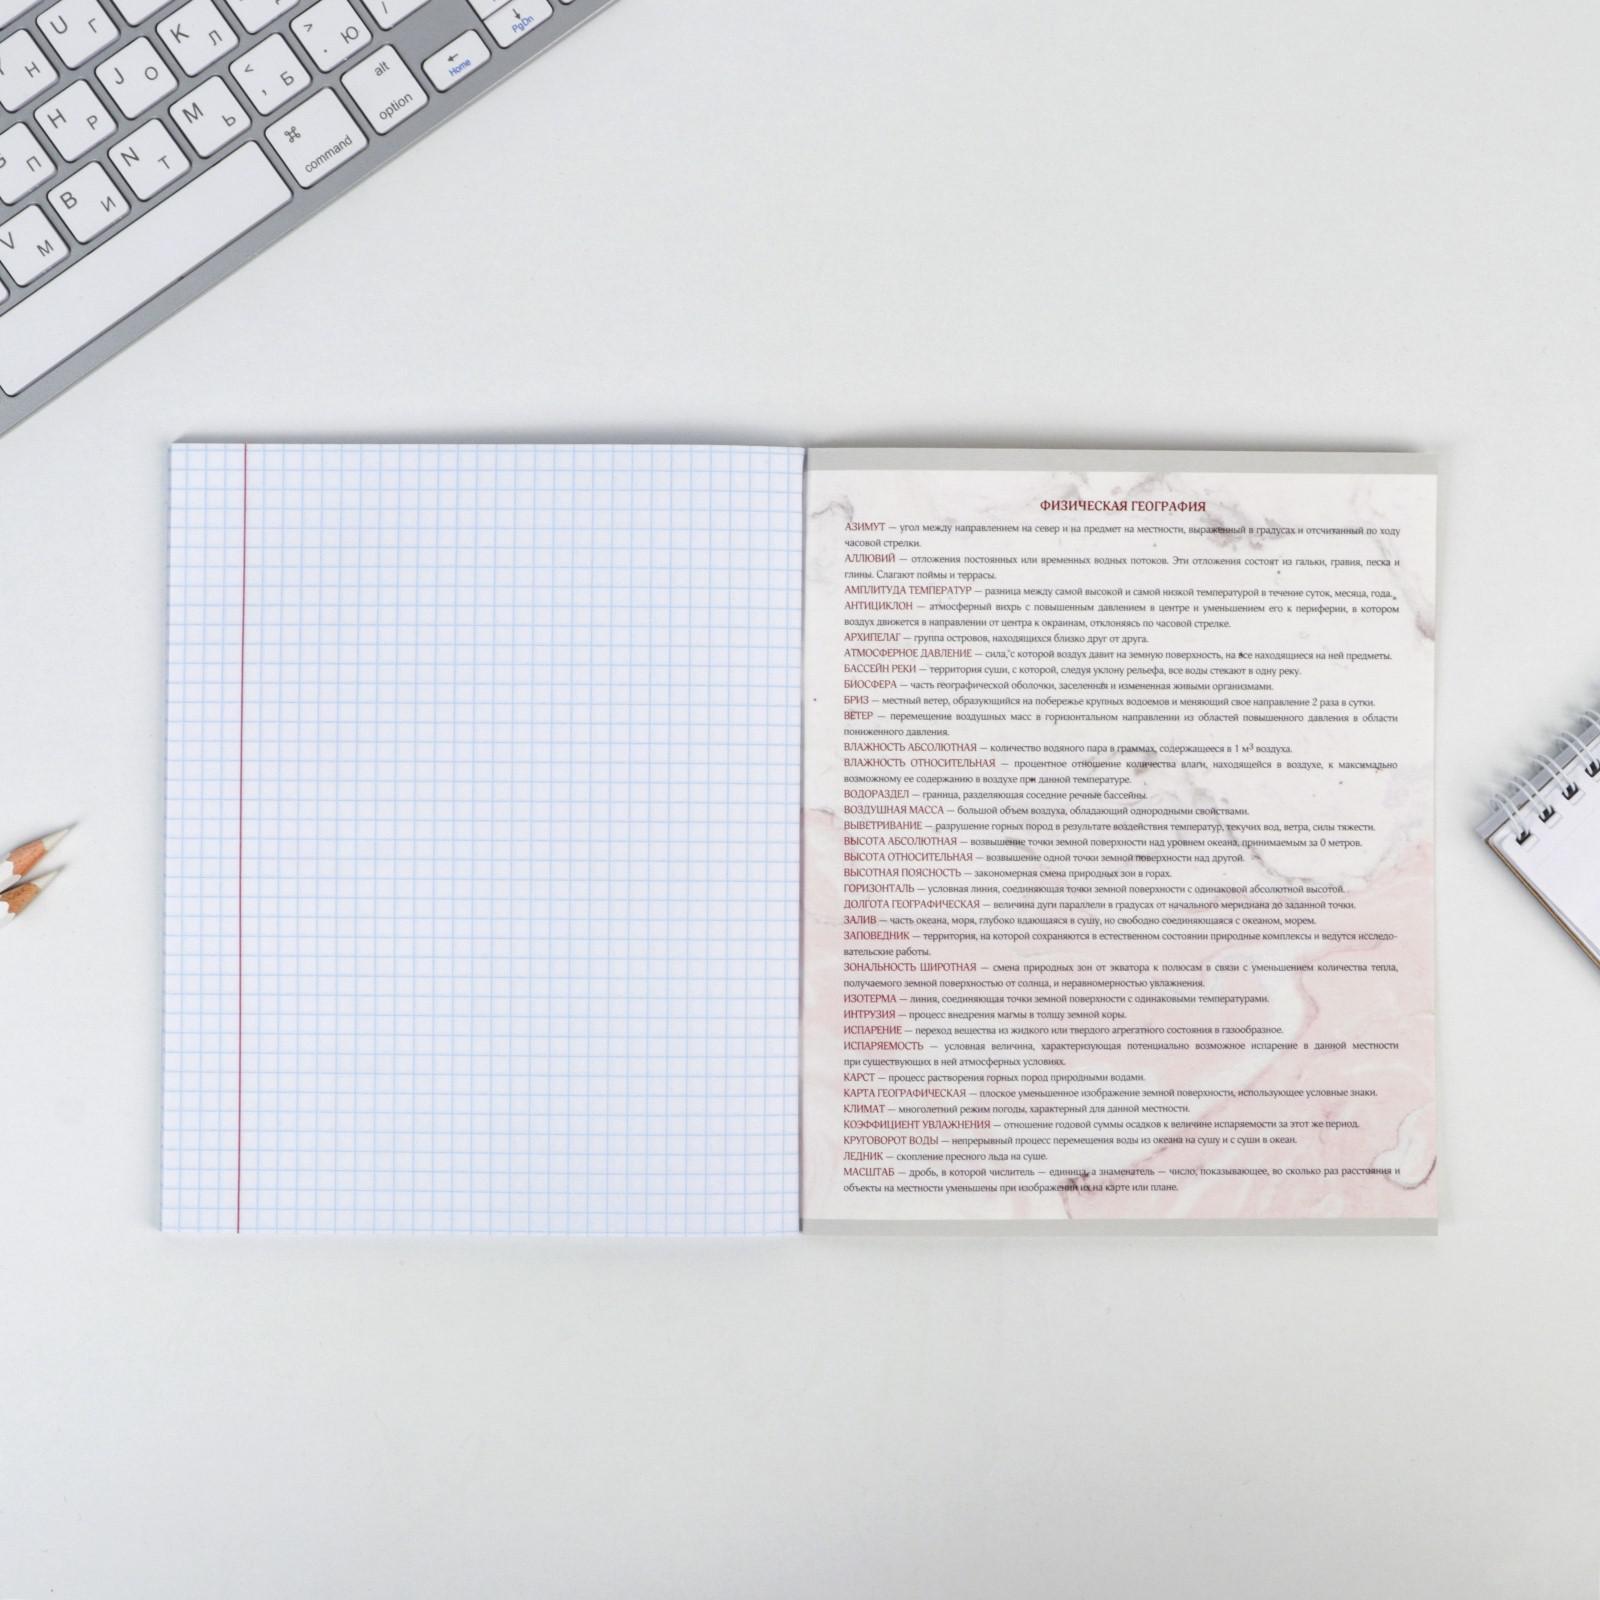 U Г
K Л
> . Ю
/
PgDn
Y Н
J О
< , Б
alt option
← Home
П
H Р
M Ь
⌘ command
B И
N Т
V М
ФИЗИЧЕСКАЯ ГЕОГРАФИЯ
АЗИМУТ — угол между направлением на север и на предмет на местности, выраженный в градусах и отсчитанный по ходу
часовой стрелки.
АЛЛЮВИЙ — отложения постоянных или временных водных потоков. Эти отложения состоят из гальки, гравия, песка и
глины. Слагают поймы и террасы.
АМПЛИТУДА ТЕМПЕРАТУР — разница между самой высокой и самой низкой температурой в течение суток, месяца, года.
АНТИЦИКЛОН — атмосферный вихрь с повышенным давлением в центре и уменьшением его к периферии, в котором
воздух движется в направлении от центра к окраинам, отклоняясь по часовой стрелке.
АРХИПЕЛАГ — группа островов, находящихся близко друг от друга.
АТМОСФЕРНОЕ ДАВЛЕНИЕ — сила, с которой воздух давит на земную поверхность, на все находящиеся на ней предметы.
БАССЕЙН РЕКИ — территория суши, с которой, следуя уклону рельефа, все воды стекают в одну реку.
БИОСФЕРА — часть географической оболочки, заселенная и измененная живыми организмами.
БРИЗ — местный ветер, образующийся на побережье крупных водоемов и меняющий свое направление 2 раза в сутки.
ВЕТЕР — перемещение воздушных масс в горизонтальном направлении из областей повышенного давления в области
пониженного давления.
ВЛАЖНОСТЬ АБСОЛЮТНАЯ — количество водяного пара в граммах, содержащееся в 1 м³ воздуха.
ВЛАЖНОСТЬ ОТНОСИТЕЛЬНАЯ — процентное отношение количества влаги, находящейся в воздухе, к максимально
возможному ее содержанию в воздухе при данной температуре.
ВОДОРАЗДЕЛ — граница, разделяющая соседние речные бассейны.
ВОЗДУШНАЯ МАССА — большой объем воздуха, обладающий однородными свойствами.
ВЫВЕТРИВАНИЕ — разрушение горных пород в результате воздействия температур, текучих вод, ветра, силы тяжести.
ВЫСОТА АБСОЛЮТНАЯ — возвышение точки земной поверхности над уровнем океана, принимаемым за 0 метров.
ВЫСОТА ОТНОСИТЕЛЬНАЯ — возвышение одной точки земной поверхности над другой.
ВЫСОТНАЯ ПОЯСНОСТЬ — закономерная смена природных зон в горах.
ГОРИЗОНТАЛЬ — условная линия, соединяющая точки земной поверхности с одинаковой абсолютной высотой.
ДОЛГОТА ГЕОГРАФИЧЕСКАЯ — величина дуги параллели в градусах от начального меридиана до заданной точки.
ЗАЛИВ — часть океана, моря, глубоко вдающаяся в сушу, но свободно соединяющаяся с океаном, морем.
ЗАПОВЕДНИК — территория, на которой сохраняются в естественном состоянии природные комплексы и ведутся исследо-
вательские работы.
ЗОНАЛЬНОСТЬ ШИРОТНАЯ — смена природных зон от экватора к полюсам в связи с уменьшением количества тепла,
получаемого земной поверхностью от солнца, и неравномерностью увлажнения.
ИЗОТЕРМА — линия, соединяющая точки земной поверхности с одинаковыми температурами.
ИНТРУЗИЯ — процесс внедрения магмы в толщу земной коры.
ИСПАРЕНИЕ — переход вещества из жидкого или твердого агрегатного состояния в газообразное.
ИСПАРЯЕМОСТЬ — условная величина, характеризующая потенциально возможное испарение в данной местности
при существующих в ней атмосферных условиях.
КАРСТ — процесс растворения горных пород природными водами.
КАРТА ГЕОГРАФИЧЕСКАЯ — плоское уменьшенное изображение земной поверхности, использующее условные знаки.
КЛИМАТ — многолетний режим погоды, характерный для данной местности.
КОЭФФИЦИЕНТ УВЛАЖНЕНИЯ — отношение годовой суммы осадков к величине испаряемости за этот же период.
КРУГОВОРОТ ВОДЫ — непрерывный процесс перемещения воды из океана на сушу и с суши в океан.
ЛЕДНИК — скопление пресного льда на суше.
МАСШТАБ — дробь, в которой числитель — единица, а знаменатель — число, показывающее, во сколько раз расстояния и
объекты на местности уменьшены при изображении их на карте или плане.